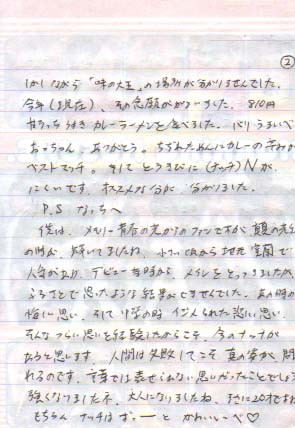 ②
しかしながら「味の大王」の場所が分かりませんでした。
今年(現在)、その念願がかないました。810円
カレーラーメンを食べました。バリうまいべ
おっちゃん、ありがとう。ちぢれためんにカレーの
ベストマッチ。そして とうきびに(ナッチ)Nが
にくいです。
P.S なっちへ
僕は、メモリー青春の光からのファンですが
の時が、輝いてましたね、小さい頃から地元室蘭で
人気があり、デビュー当時から、メランをとってきましたが、
ふるさとで思ったような結果がでませんでした。あの時の
悔しい思い、そして中学の時 イジメられた悲しい思い、
そんなつらい思いを経験したからこそ、今のナッチが
あると思います。人間は失敗してこそ 真の姿が、問
われるのです。言葉では表せられない思いだったことでしょう
強くなりましたネ。大人になりましたね。
もちろん ナッチはずーーっと かわいいべ♡